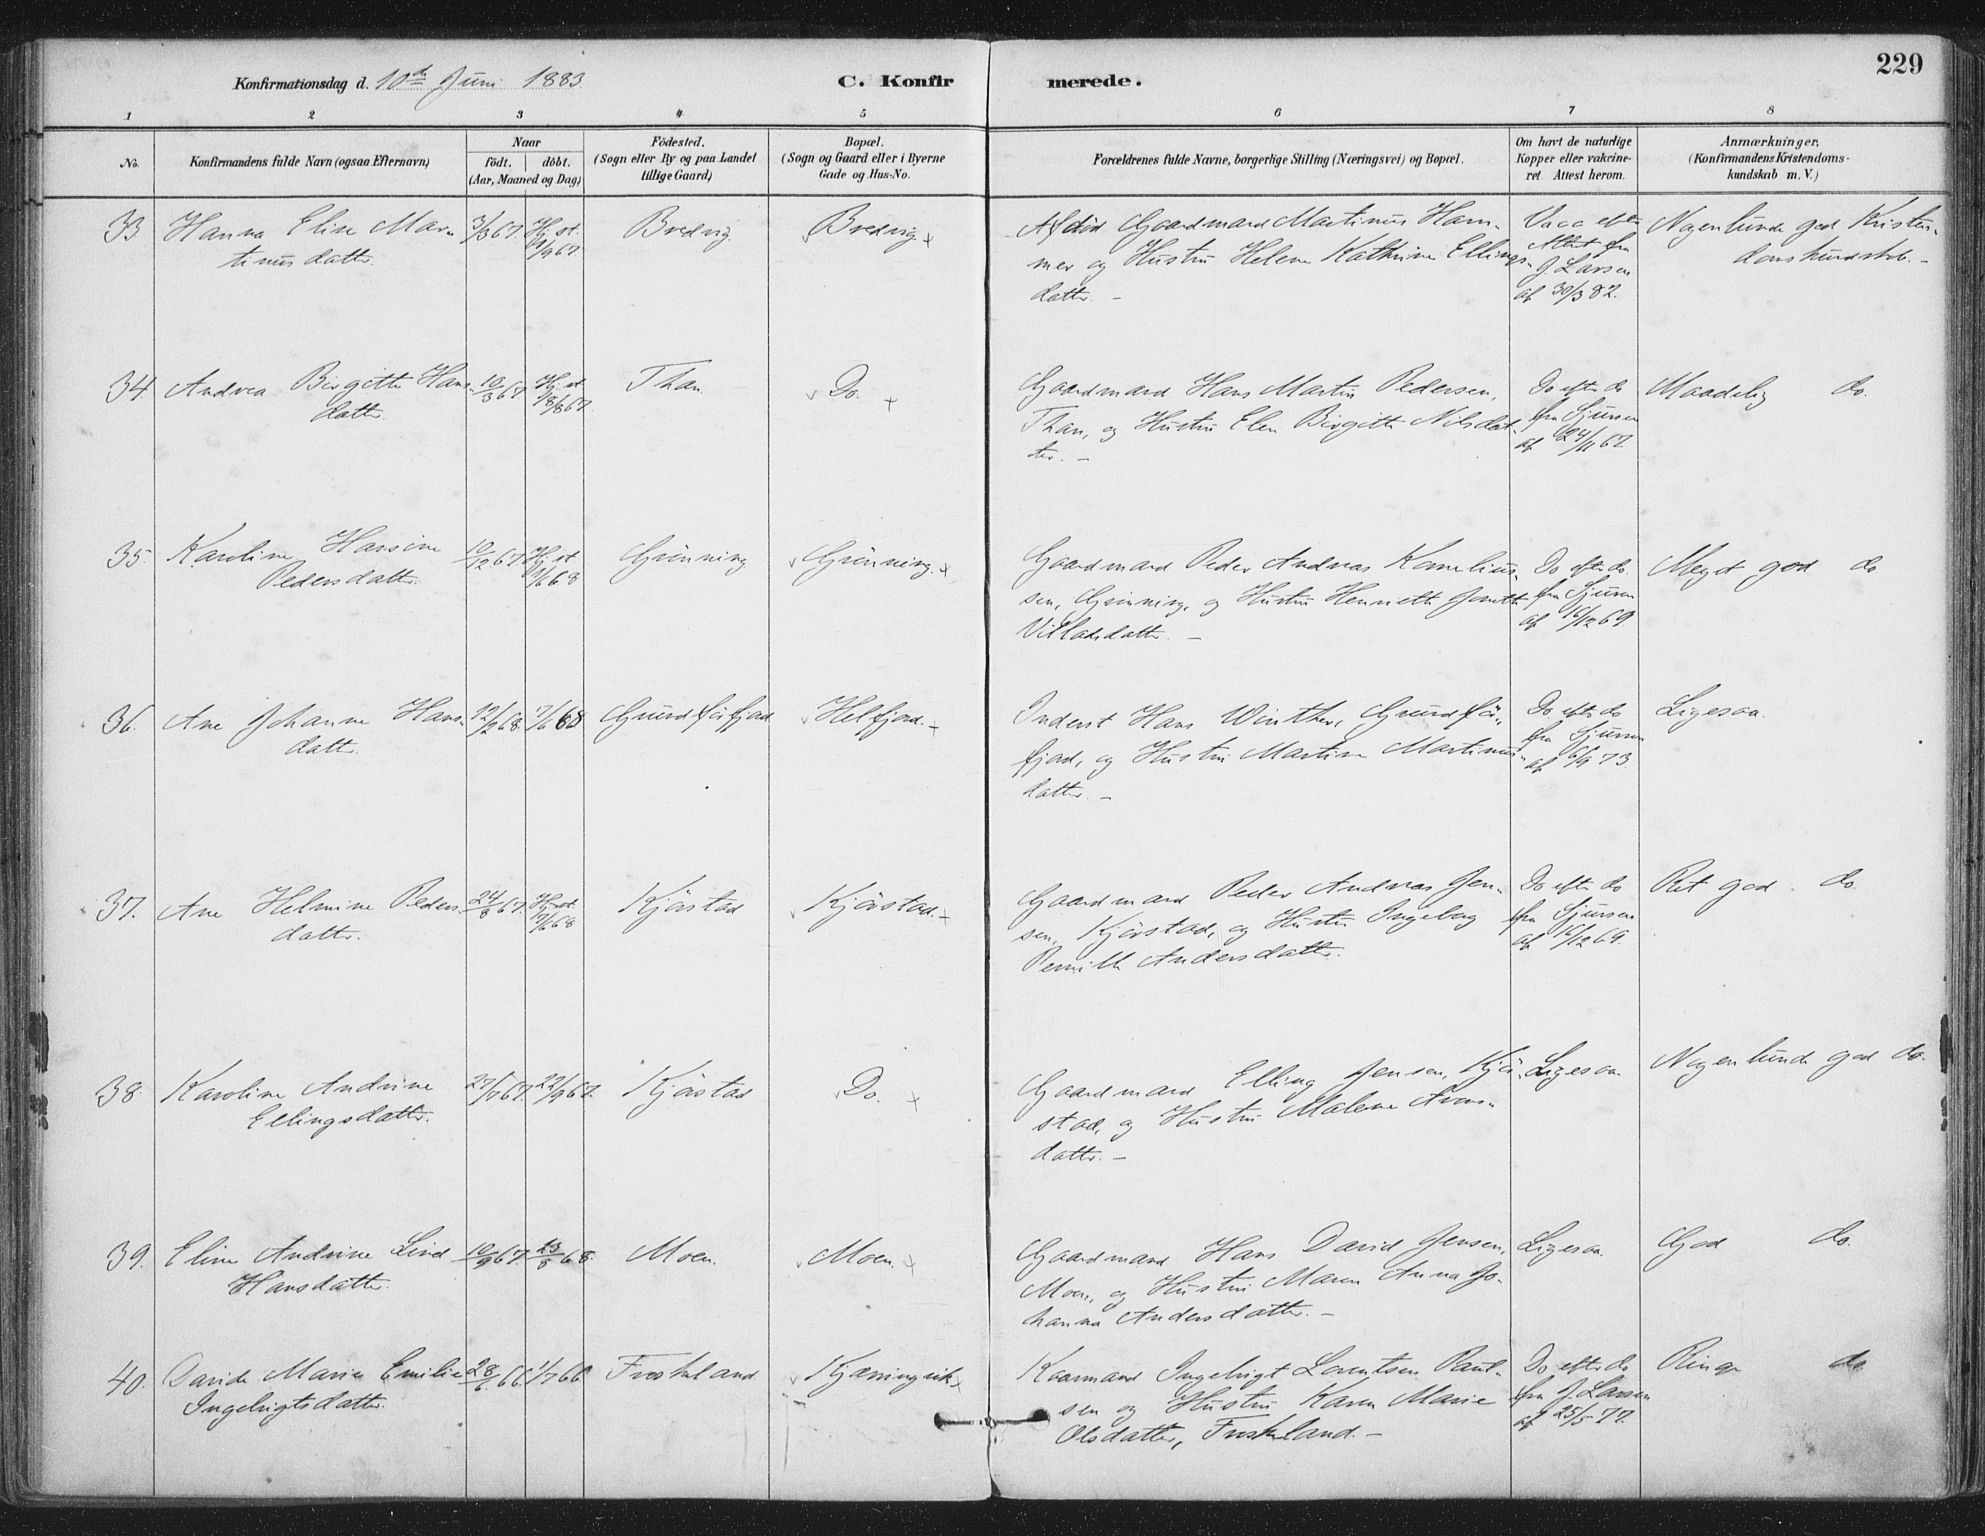 229
Konfirmationsdag d. 10de Juni 1883
C. Konfirmerede.
1 2 3 4 5 6 7 8
No.
Konfirmandens fulde Navn (ogsaa Efternavn)
Naar
födt. döbt.
(Aar, Maaned og Dag)
Födested.
(Sogn eller By og paa Landet
tillige Gaard)
Bopæl.
(Sogn og Gaard eller i Byerne
Gade og Hus-No.
Forældrenes fulde Navne, borgerlige Stilling (Næringsvei) og Bopæl.
Om havt de naturlige
Kopper eller vakcine-
ret Attest herom.
Anmærkninger,
(Konfirmandens Kristendoms-
kundskab m. V.)
33 Hanna Elise Mar-
tinusdatter.
3/8 67. Hj. st. /9 67
Bredvig.
Bredvig.
Gaardmand Martinus Ham-
mer og Hustru Helene Kathrine Ellings-
datter. -
Vacc. efter
Attest fra
J. Larsen
af 30/3 82.
Nogenlunde god Kristen-
domskundskab. -
34. Andrea Birgitte Hans-
datter.
10/3 67 Hj. st. 18/8 67.
Than.
Do.
Gaardmand Hans Martin Pedersen,
Than, og Hustru Elen Birgitte Nilsdat-
ter. -
Do efter do
fra Sjursen
af 24/11 67.
Maadelig do.
35. Karoline Hansine
Pedersdatter.
10/12 67. Hj. st. /6 68
Grönning
Grönning.
Gaardmand Peder Andreas Kornelius-
sen, Grönning, og Hustru Henriette Jonette
Villadsdatter. -
Do efter do.
fra Sjursen
af 16/12 69
Meget god do
36. Ane Johanne Hans-
datter.
12/2 68. 7/6 68
Grundförfjord
Helfjord.
Inderst Hans Winther, Grundför-
fjord, og Hustru Martine Martinus-
datter. -
Do efter do
fra Sjursen
af 6/9 73.
Ligesaa.
37. Ane Helmine Peders-
datter.
24/8 67. Hj. st. /6 68
Kjörstad
Kjörstad.
Gaardmand Peder Andreas Jen-
sen, Kjörstad, og Hustru Ingeborg
Pernille Andersdatter.
Do efter do
fra Sjursen
af 16/12 69.
Ret god do.
38. Karoline Andrine
Ellingsdatter.
27/7 67. 22/9 67.
Kjörstad
Do.
Gaardmand Elling Jensen, Kjör-
stad, og Hustru Malene Arons-
datter. -
Ligesaa
Nogenlunde god do.
39. Eline Andrine Lind
Hansdatter.
10/9 67. 23/8 68.
Moen.
Moen.
Gaardmand Hans David Jensen,
Moen, og Hustru Maren Anna Jo-
hanna Andersdatter. -
Ligesaa.
God do.
40. Davide Marie Emilie
Ingebrigtsdatter.
28/6 66. 1/7 66
Freskeland
Kjæringvik.
Kaarmand Ingebrigt Lorentsen Paul-
sen og Hustru Karen Marie
Olsdatter, Freskeland. -
Do efter do
fra J. Larsen
af 25/5 77.
Ringe do.